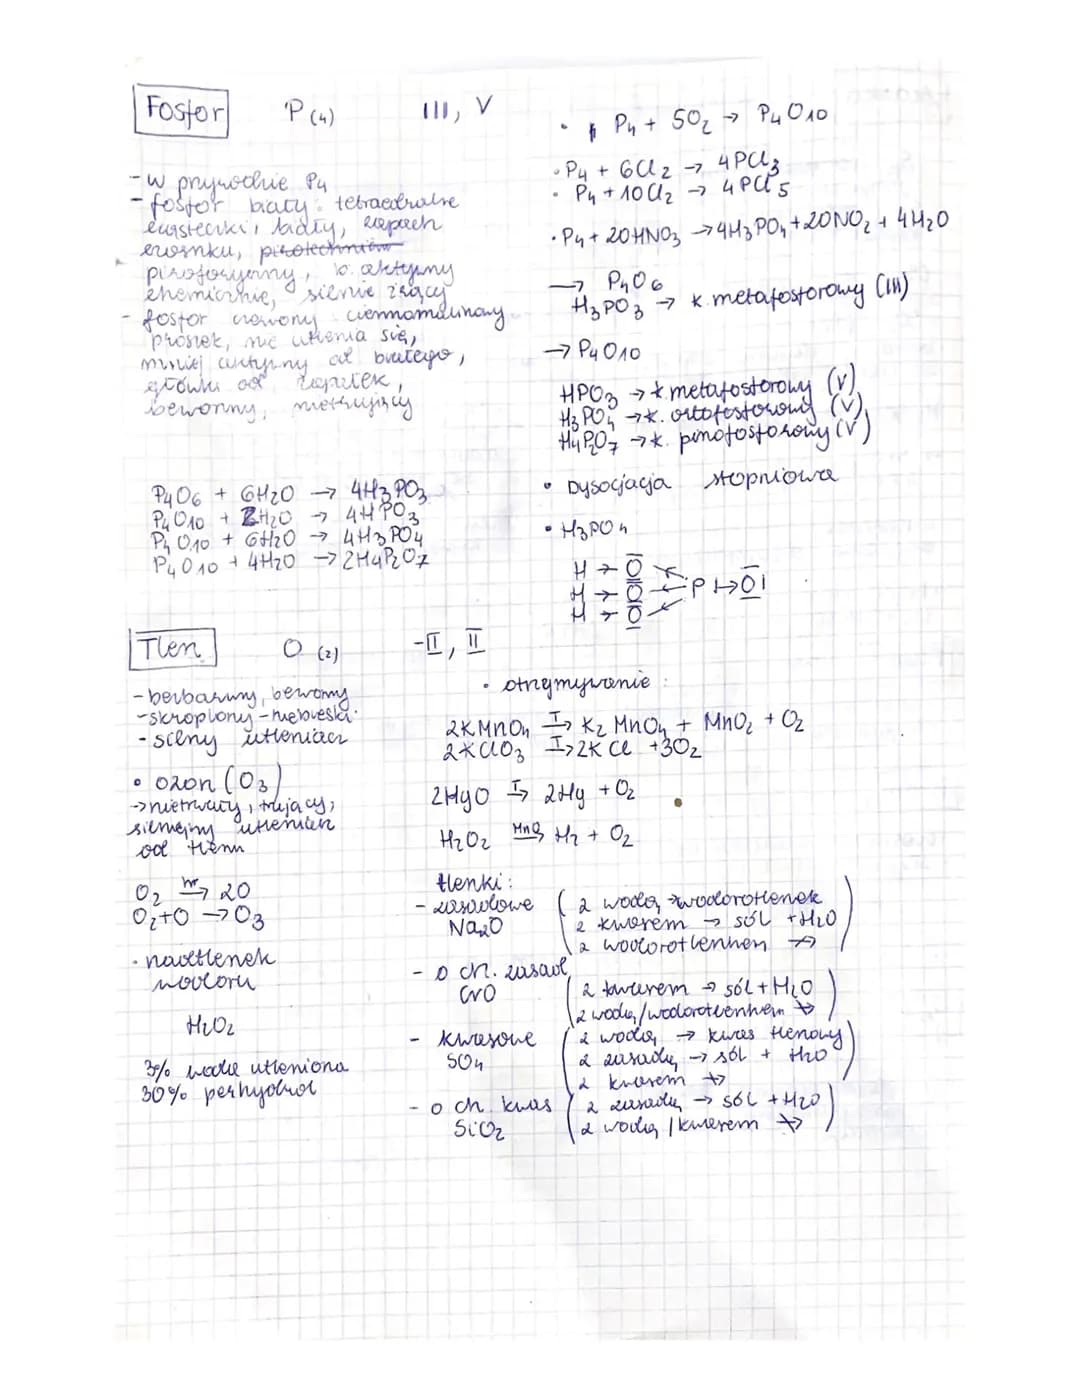 Fosfor P(4) III, V
- w przyrodzie P4
- fosfor biały: tetraedralne
cząsteczki, biały, zapach
czosnku, pirotechniczn
piroforyczny, b. aktywny
chemicznie, silnie żrący
- fosfor czerwony: ciemnomalinowy
proszek, nie utlenia się,
mniej aktywny od białego,
główki od zapałek,
bezwonny, nietrujący
P4O6 + 6H2O → 4H3PO3
P4O10 + 2H2O → 4HPO3
P4O10 + 6H2O → 4H3PO4
P4O10 + 4H2O → 2H4P2O7
• P4 + 5O2 → P4O10
• P4 + 6Cl2 → 4PCl3
• P4 + 10Cl2 → 4PCl5
• P4 + 20HNO3 → 4H3PO4 + 20NO2 + 4H2O
→ P4O6
H3PO3 → k. metafosforowy (III)
→ P4O10
HPO3 → k. metafosforowy (V)
H3PO4 → k. ortofosforowy (V)
H4P2O7 → k. pirofosforowy (V)
• Dysocjacja stopniowa
• H3PO4
H → O
H → O P → O
H → O
Tlen O (2) -II, II
- bezbarwny, bezwonny
- skroplony - niebieski
- silny utleniacz
• ozon (O3)
→ nietrwały, trujący,
silniejszy utleniacz
od tlenu
O2 hν→ 2O
O2+O → O3
• nadtlenek
wodoru
H2O2
3% woda utleniona
30% perhydrol
• otrzymywanie:
2KMnO4 T→ K2MnO4 + MnO2 + O2
2KClO3 T→ 2KCl + 3O2
2HgO T→ 2Hg + O2
H2O2 MnO2→ H2 + O2
tlenki:
- zasadowe ( z wodą → wodorotlenek
Na2O z kwasem → sól + H2O
z wodorotlenkem ↛ )
- o ch. zasad
CrO ( z kwasem → sól + H2O
z wodą/wodorotlenkiem ↛ )
- kwasowe ( z wodą → kwas tlenowy
SO4 z zasadą → sól + H2O
z kwasem ↛ )
- o ch. kwas ( z zasadą → sól + H2O
SiO2 z wodą / kwasem ↛ )